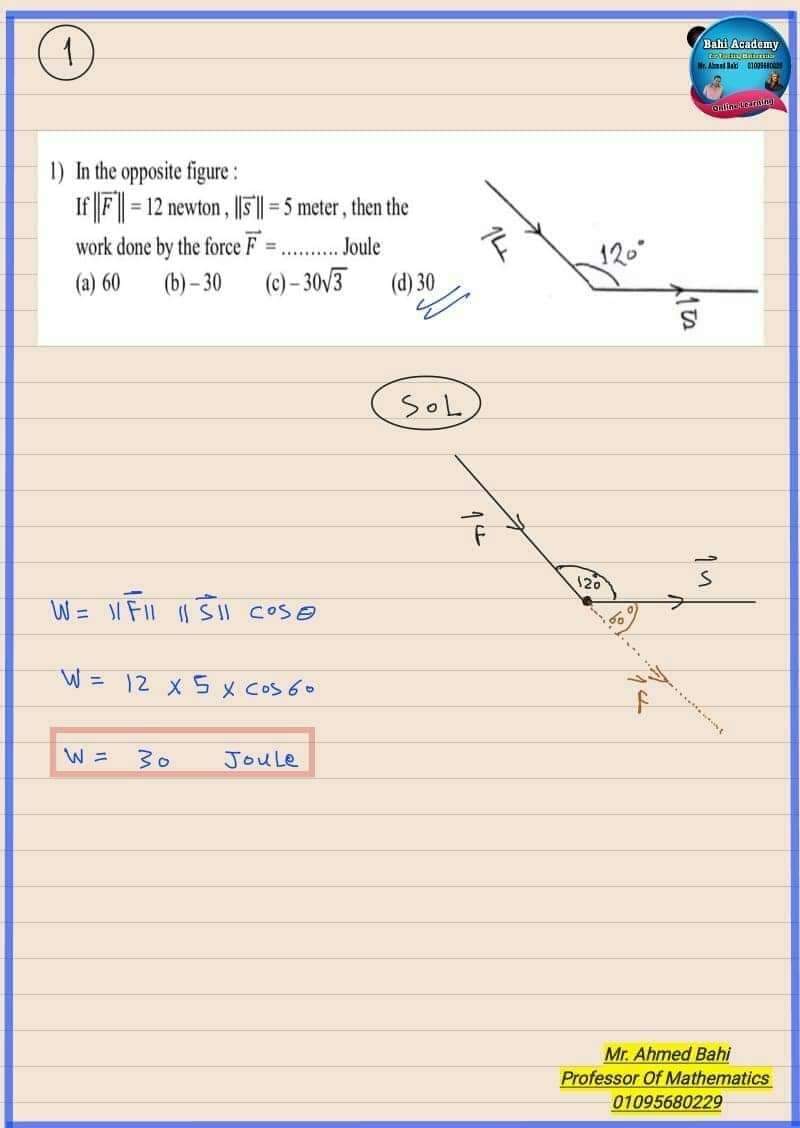 1
Bahi Academy
For Teaching Mathematics
Mr. Ahmed Bahi 01095680229
Online Learning
1) In the opposite figure :
If ||F⃗|| = 12 newton , ||s⃗|| = 5 meter , then the
work done by the force F⃗ = .......... Joule
(a) 60 (b) – 30 (c) – 30√3 (d) 30
F⃗
120°
S⃗
SOL
F⃗
120°
S⃗
60°
F⃗
W = ||F⃗|| ||S⃗|| cos θ
W = 12 x 5 x cos 60
W = 30 Joule
Mr. Ahmed Bahi
Professor Of Mathematics
01095680229